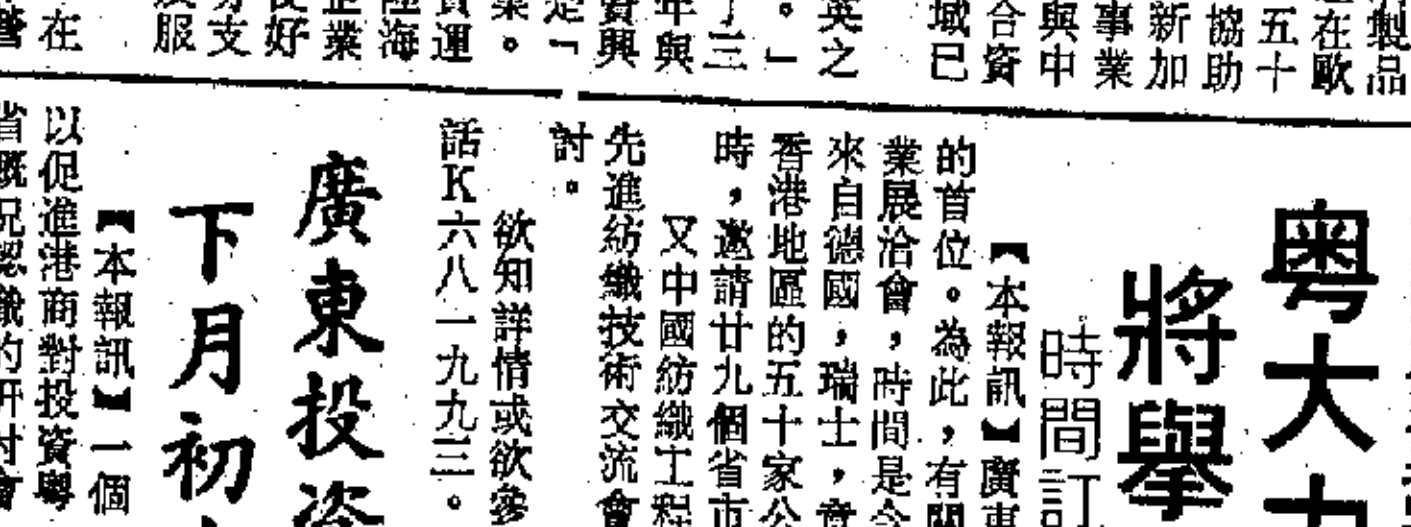 製品
在歐
五十
協助
新加
事業
與中
合資
域已
英之
。」
三
年與
資興
是「
業。
運
海
企業
好
支
服
在
粵大
將舉
時間訂
【本報訊】廣東
的首位。為此,有關
業展洽會,時間是今
來自德國,瑞士,意
香港地區的五十家公
時,邀請廿九個省市
又中國紡織工程
先進紡織技術交流會
討。
欲知詳情或欲參
話K六八一九九三。
廣東投資
下月初
【本報訊】一個
以促進港商對投資粵
省概況認識的研討會